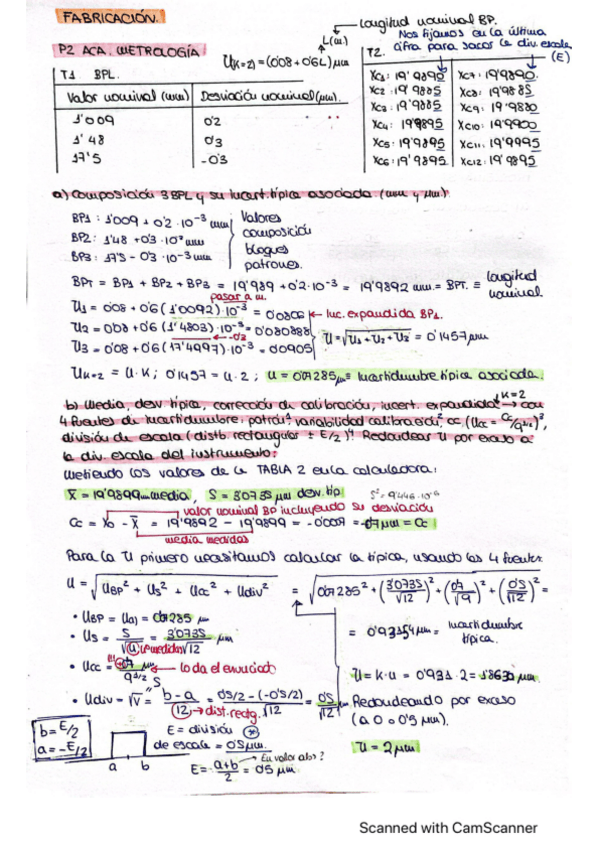 FABRICACIÓN.
Longitud nominal BP.
L(m)
Nos fijamos en la última
cifra para sacar la div. escala
(E)
P2 ACA. METROLOGÍA
U(K=2) = (0'08 + 0'6L) μm
T2.
T1. BPL.
Valor nominal (mm) Desviación nominal (μm).
1'009 0'2
1'48 0'3
17'5 -0'3
Xc1: 19'9890 Xc7: 19'9890.
Xc2: 19'9885 Xc8: 19'9885
Xc3: 19'9885 Xc9: 19'9880
Xc4: 19'9895 Xc10: 19'9900
Xc5: 19'9895 Xc11: 19'9995
Xc6: 19'9895. Xc12: 19'9895
a) Composición 3 BPL y su incert. típica asociada. (mm y μm)
BP1: 1'009 + 0'2·10⁻³ mm
BP2: 1'48 + 0'3·10⁻³ mm
BP3: 17'5 - 0'3·10⁻³ mm
Valores
composición
bloques
patrones.
BPT = BP1 + BP2 + BP3 = 19'989 + 0'2·10⁻³ = 19'9892 mm. = BPT. ≡ longitud
nominal
pasar a m.
U1 = 0'08 + 0'6(1'0092)·10⁻³ = 0'0806 ← Inc. expandida BP1.
U2 = 0'08 + 0'6(1'4803)·10⁻³ = 0'080888
-0'3
U3 = 0'08 + 0'6(17'4997)·10⁻³ = 0'0905
U = √U1 + U2 + U3 = 0'1457 μm
UK=2 = U·K; 0'1457 = u·2; u = 0'07285 μm ≡ Incertidumbre típica asociada.
K=2
b) Media, desv típica, corrección de calibración, incert. expandida con
4 fuentes de incertidumbre: patrón, variabilidad calibración, cc (Ucc = Cc/9^1/2)²,
división de escala (distb. rectangular ± E/2)! Redondear U por exceso a
la div. escala del instrumento:
Metiendo los valores de la TABLA 2 en la calculadora:
X̄ = 19'9899 mm media, S = 3'0735 μm desv. típ
S² = 9'446·10⁻⁶
valor nominal BP incluyendo su desviación
Cc = X0 - X̄ = 19'9892 - 19'9899 = -0'0007 = -0'7 μm = Cc
media medidas
Para la U primero necesitamos calcular la típica, usando las 4 fuentes
U = √UBP² + Us² + Ucc² + Udiv² = √0'07285² + (3'0735/√12)² + (0'7/√9)² + (0'5/√12)² =
• UBP = Ua) = 0'07285 μm
• Us = S/√n = 3'0735/√12
nº medidas
= 0'93154 μm = incertidumbre
típica.
• Ucc = 0'7 μm/9^1/2 ← lo da el enunciado
U = K·u = 0'931·2 = 1'8630 μm
• Udiv = √V = b-a/√12 = 0'5/2-(-0'5/2)/√12 = 0'5/√12 μm.
12 → dist. rectg.
Redondeando por exceso
(a 0'05 μm).
b = E/2
a = -E/2
E = división
de escala = 0'5 μm.
U = 2 μm
a b
E = a+b/2 = 0'5 μm
En valor abs?
Scanned with CamScanner